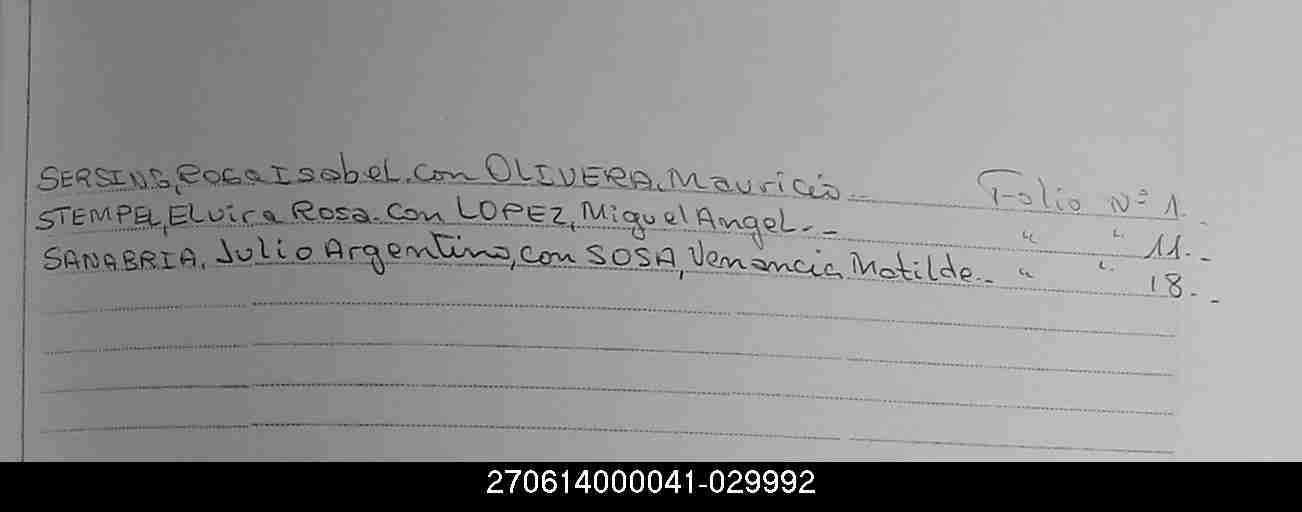 SERSINS, Rosa Isabel. con OLIVERA, Mauricio.. Folio Nº 1..
STEMPEL, Elvira Rosa. con LOPEZ, Miguel Angel.-- " " 11.-
SANABRIA, Julio Argentino, con SOSA, Venancia Matilde.. " " 18.--
270614000041-029992